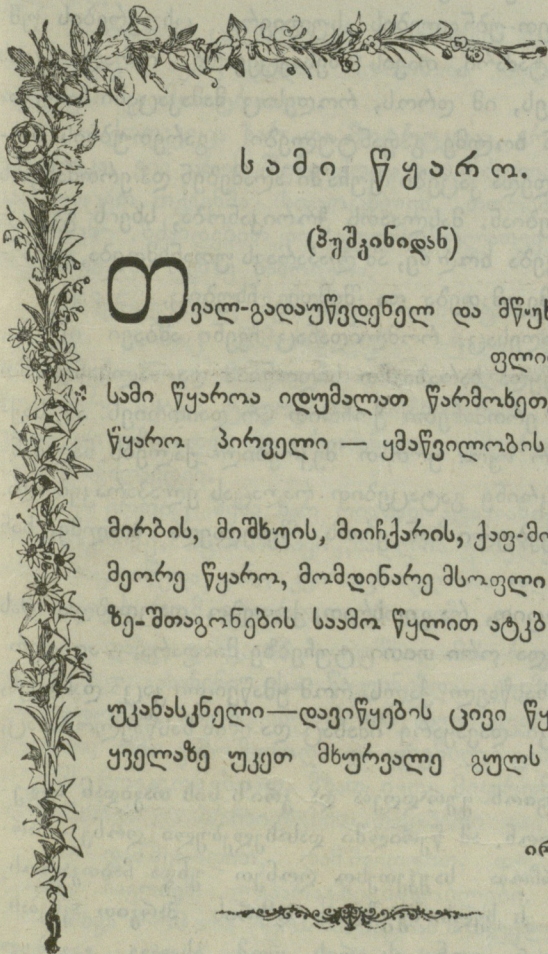 სამი წყარო.
(პუშკინიდან)
თვალ-გადაუწვდენელ და მწუხ
ფლი
სამი წყაროა იდუმალათ წარმოხეთ
წყარო პირველი — ყმაწვილობის
მირბის, მიშხუის, მიიჩქარის, ქაფ-მო
მეორე წყარო, მომდინარე მსოფლი
ზე-შთაგონების საამო წყლით ატკბ
უკანასკნელი—დავიწყების ცივი წყ
ყველაზე უკეთ მხურვალე გულს
ირ